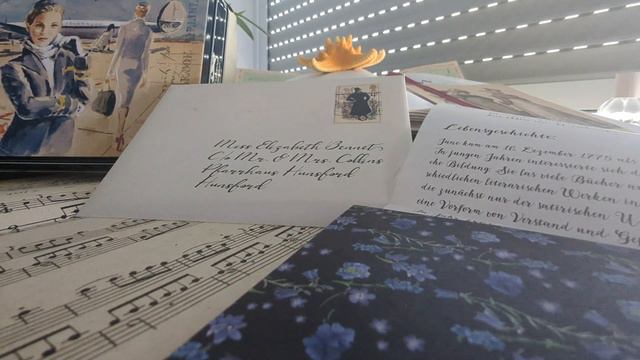 Miss Elizabeth Bennet
C/o Mr. & Mrs. Collins
Pfarrhaus Hunsford
Hunsford
Lebensgeschichte:
Jane kam am 16. Dezember 1775 als
In jungen Jahren interessierte sich d
che Bildung. Sie las viele Bücher a
schiedlichen literarischen Werken in
die zunächst nur der satirischen W
eine Vorform von Verstand und Ge